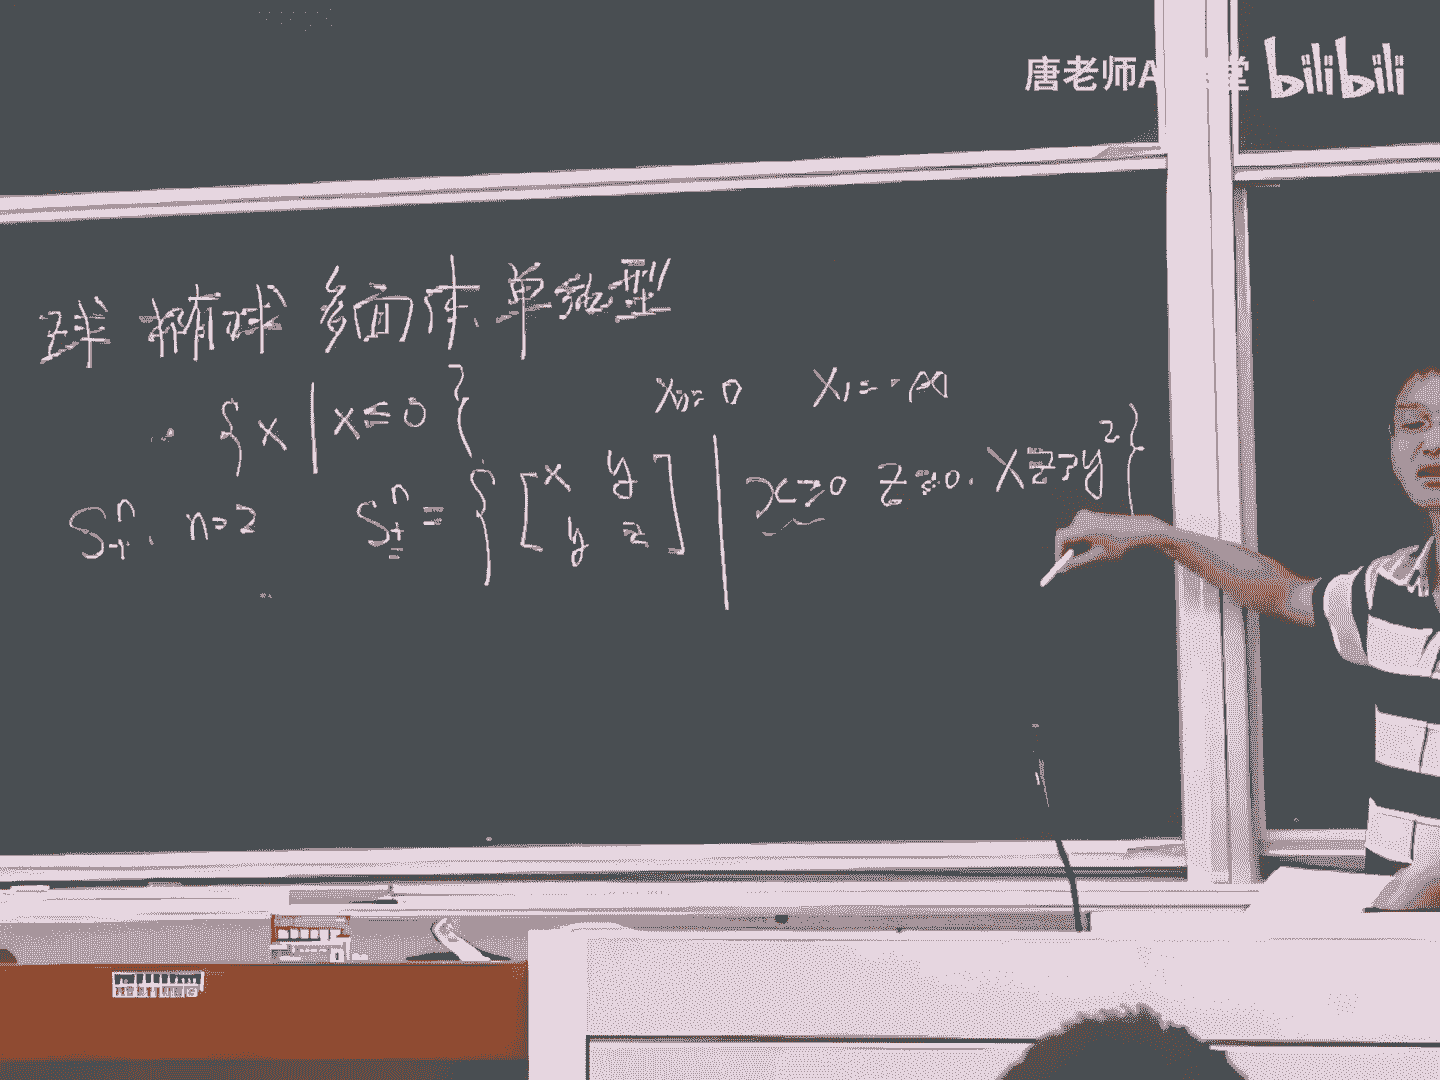 唐老师A 堂 bilibili
球 椭球 多面体 单纯型
{x | x≤0} x₀=0 x₁=-∞
S₊ⁿ. n=2 S₊ⁿ = { [x y y z] | x≥0 z≥0. xz≥y² }